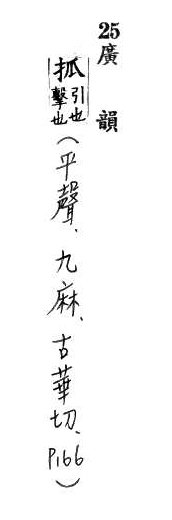 25廣韻
抓引也擊也(平聲、九麻、古華切、P.166)